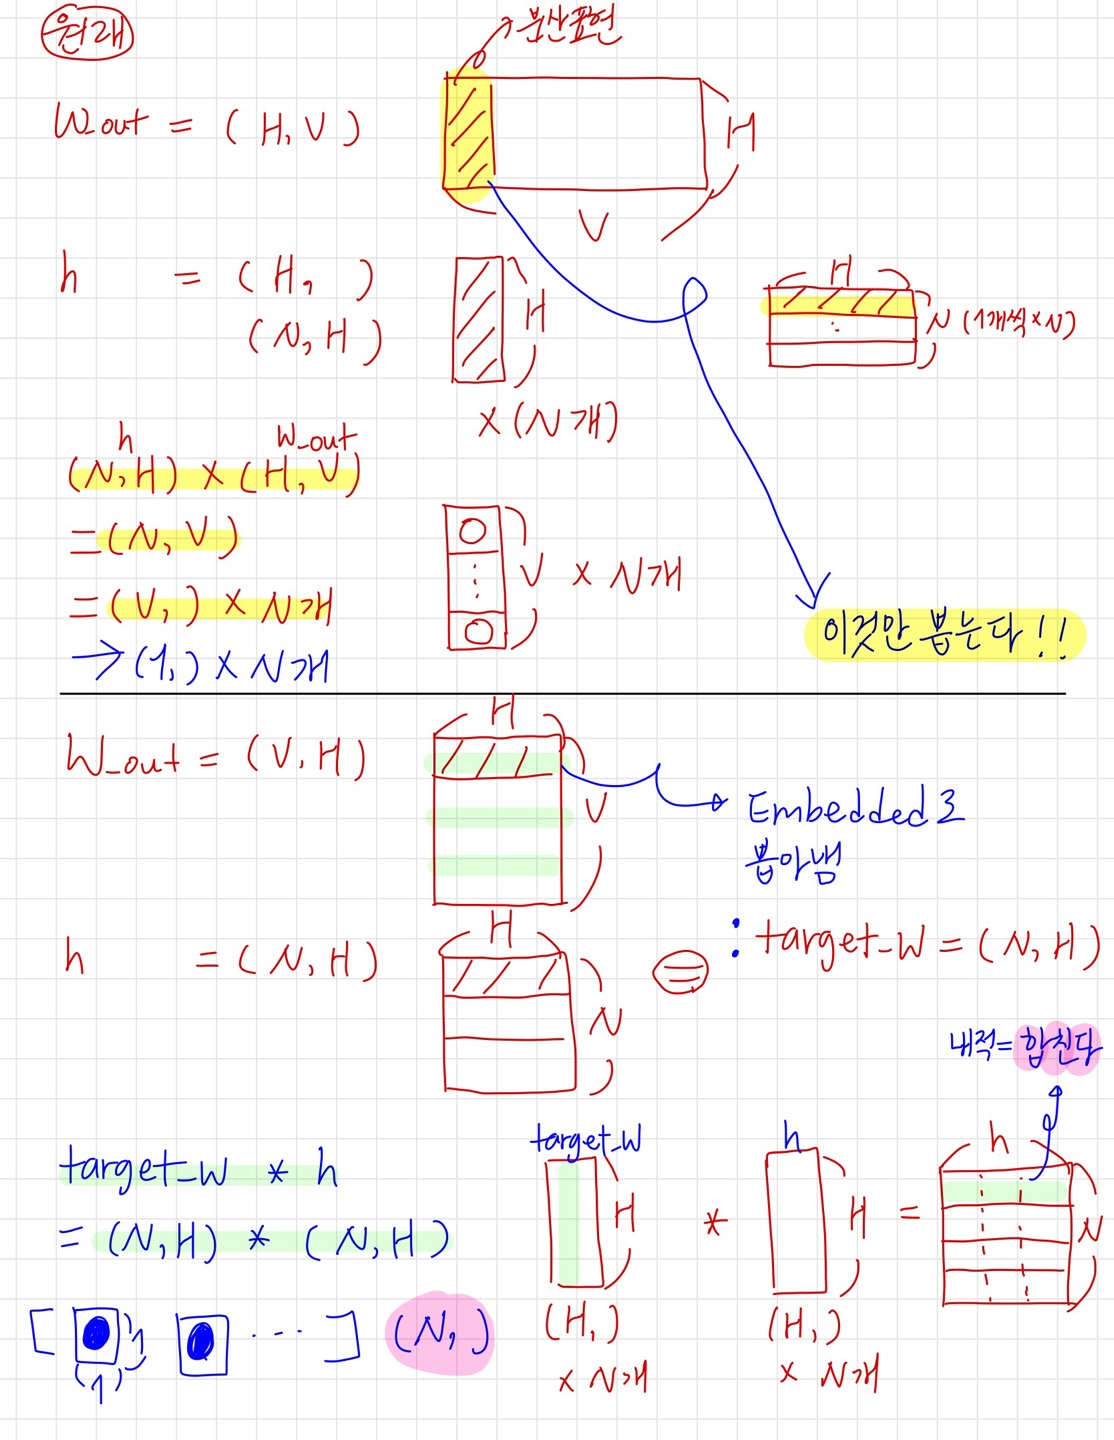 원래
분산표현
W_out = (H, V)
H
V
h = (H, )
(N, H)
H
× (N개)
H
N (1개씩×N)
h W_out
(N, H) × (H, V)
= (N, V)
= (V, ) × N개
→ (1, ) × N개
V × N개
이것만 뽑는다!!
W_out = (V, H)
H
V
Embedded로
뽑아냄
: target_W = (N, H)
h = (N, H)
H
N
=
내적 = 합친다
target_W * h
= (N, H) * (N, H)
[ 1 (1) ... ] (N, )
target_W
H
(H, )
× N개
*
h
H
(H, )
× N개
=
h
N